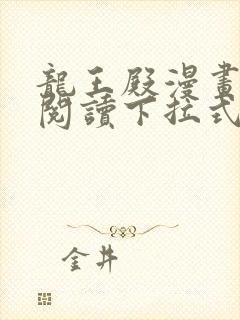 龍王殿漫畫
閱讀下拉式
金井